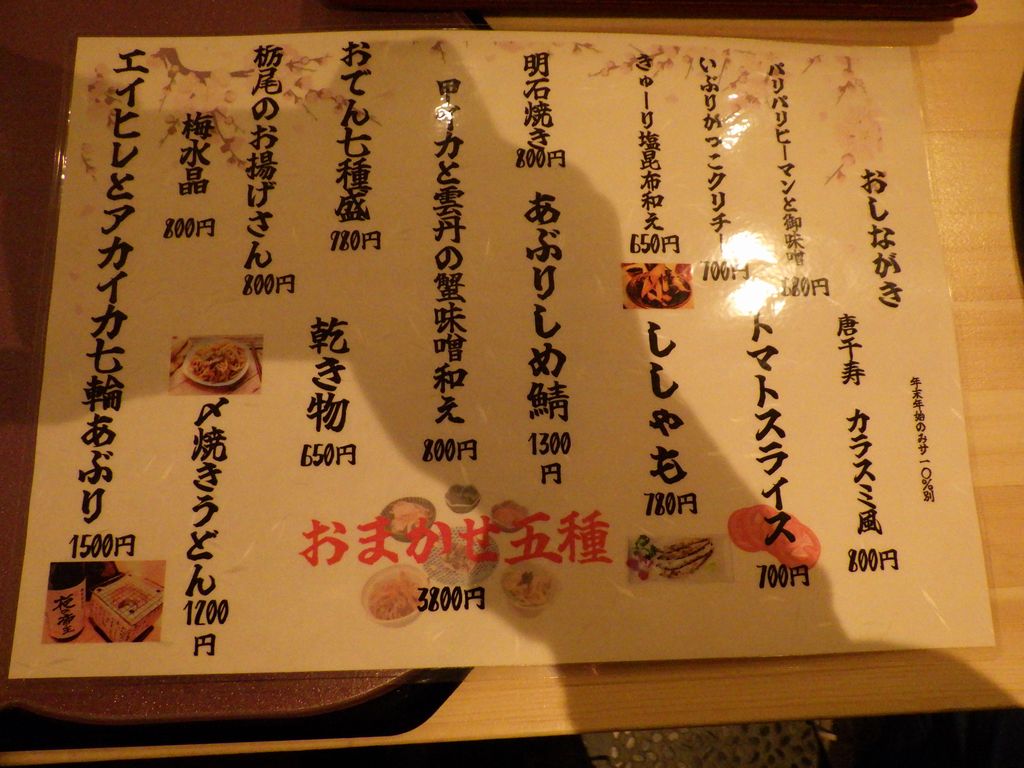 おしながき
年末年始のみサ一〇%別
唐千寿 カラスミ風
800円
パリパリピーマンと御味噌
680円
トマトスライス
700円
いぶりがっこクリチー
700円
きゅーり塩昆布和え
650円
ししゃも
780円
明石焼き
800円
あぶりしめ鯖
1300円
甲イカと雲丹の蟹味噌和え
800円
おでん七種盛
980円
乾き物
650円
栃尾のお揚げさん
800円
梅水晶
800円
〆焼きうどん
1200円
エイヒレとアカイカ七輪あぶり
1500円
おまかせ五種
3800円